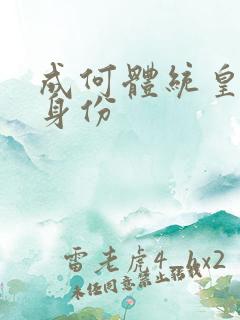 成何體統皇
身份
雷老虎4_hx2
未經同意禁止錄餞